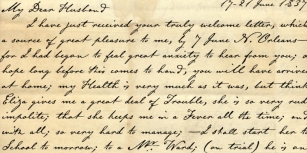 My Dear Husband 17-21 June 1837
I have just received your truly welcome letter, which
a source of great pleasure to me, by 7 June N. Orleans
for I had began to feel great anxiety to hear from you; &
hope long before this comes to hand, you will have arrived
at home; my Health is very much as it was, but think
Eliza gives me a great deal of Trouble, she is so very rude
impolite; that she keeps me in a Fever all the time; and
with all; so very hard to manage; — I shall start her to
School to morrow; to a Mrs. Ward; (on trial) he is one